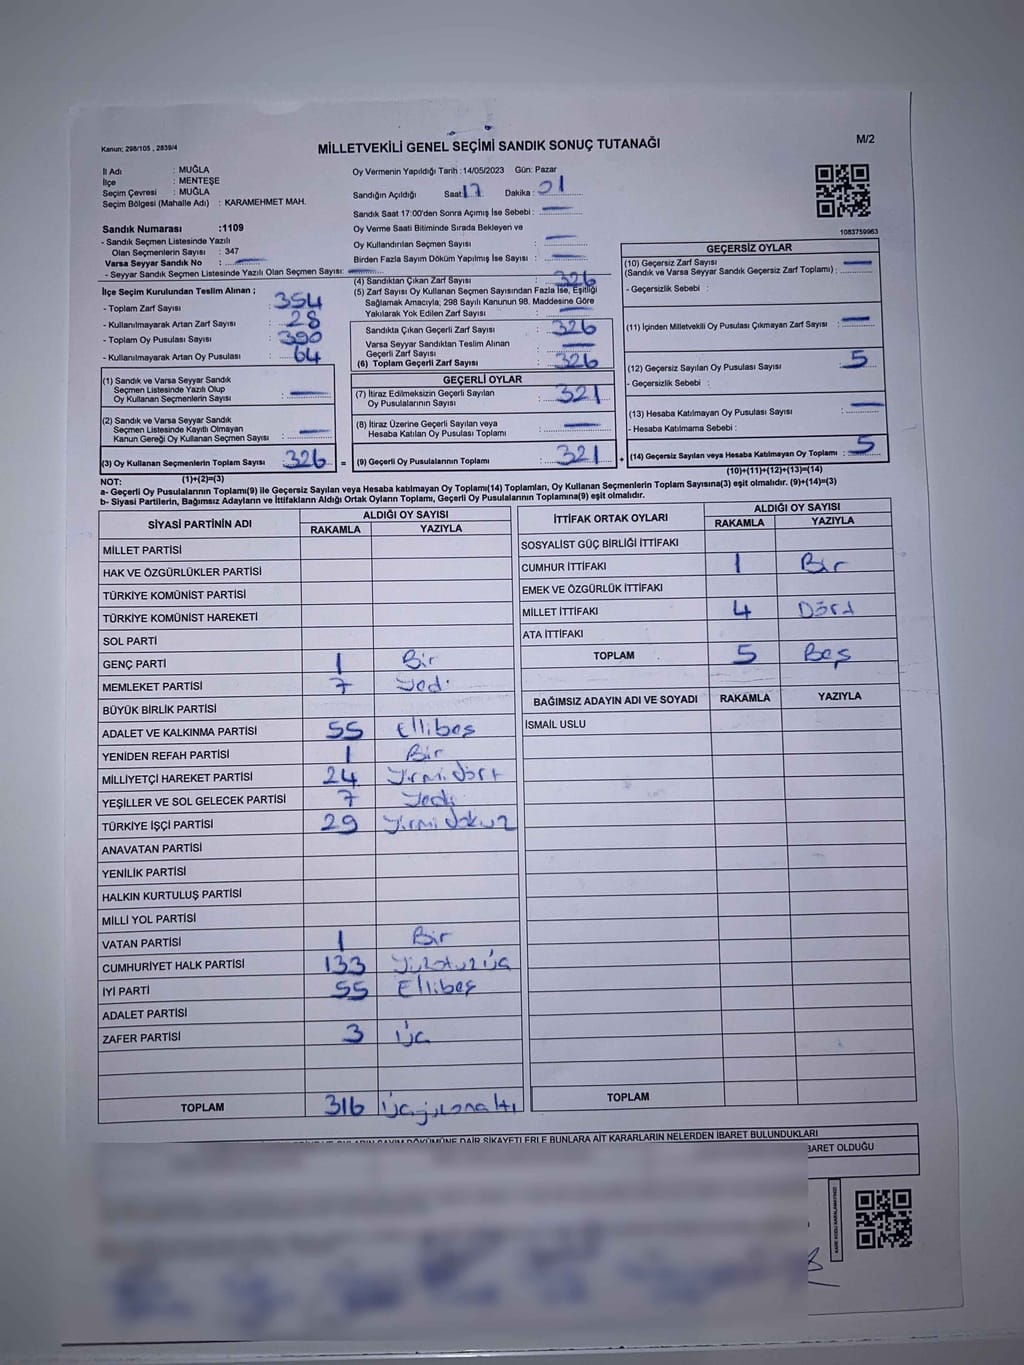 Kanun; 298/105 , 2839/4
MİLLETVEKİLİ GENEL SEÇİMİ SANDIK SONUÇ TUTANAĞI
M/2
İl Adı : MUĞLA
İlçe : MENTEŞE
Seçim Çevresi : MUĞLA
Seçim Bölgesi (Mahalle Adı) : KARAMEHMET MAH.
Sandık Numarası :1109
- Sandık Seçmen Listesinde Yazılı
Olan Seçmenlerin Sayısı : 347
Varsa Seyyar Sandık No :
- Seyyar Sandık Seçmen Listesinde Yazılı Olan Seçmen Sayısı:
İlçe Seçim Kurulundan Teslim Alınan ;
- Toplam Zarf Sayısı : 354
- Kullanılmayarak Artan Zarf Sayısı : 28
- Toplam Oy Pusulası Sayısı : 390
- Kullanılmayarak Artan Oy Pusulası : 64
(1) Sandık ve Varsa Seyyar Sandık
Seçmen Listesinde Yazılı Olup
Oy Kullanan Seçmenlerin Sayısı :
(2) Sandık ve Varsa Seyyar Sandık
Seçmen Listesinde Kayıtlı Olmayan
Kanun Gereği Oy Kullanan Seçmen Sayısı :
(3) Oy Kullanan Seçmenlerin Toplam Sayısı : 326
(1)+(2)=(3)
Oy Vermenin Yapıldığı Tarih :14/05/2023 Gün: Pazar
Sandığın Açıldığı Saat: 17 Dakika : 01
Sandık Saat 17:00'den Sonra Açımış İse Sebebi :
Oy Verme Saati Bitiminde Sırada Bekleyen ve
Oy Kullandırılan Seçmen Sayısı :
Birden Fazla Sayım Döküm Yapılmış İse Sayısı :
(4) Sandıktan Çıkan Zarf Sayısı : 326
(5) Zarf Sayısı Oy Kullanan Seçmen Sayısından Fazla İse, Eşitliği
Sağlamak Amacıyla; 298 Sayılı Kanunun 98. Maddesine Göre
Yakılarak Yok Edilen Zarf Sayısı :
Sandıkta Çıkan Geçerli Zarf Sayısı : 326
Varsa Seyyar Sandıktan Teslim Alınan
Geçerli Zarf Sayısı :
(6) Toplam Geçerli Zarf Sayısı : 326
GEÇERLİ OYLAR
(7) İtiraz Edilmeksizin Geçerli Sayılan
Oy Pusulalarının Sayısı : 321
(8) İtiraz Üzerine Geçerli Sayılan veya
Hesaba Katılan Oy Pusulası Toplamı :
= (9) Geçerli Oy Pusulalarının Toplamı : 321 +
1083759963
GEÇERSİZ OYLAR
(10) Geçersiz Zarf Sayısı
(Sandık ve Varsa Seyyar Sandık Geçersiz Zarf Toplamı) :
- Geçersizlik Sebebi :
(11) İçinden Milletvekili Oy Pusulası Çıkmayan Zarf Sayısı :
(12) Geçersiz Sayılan Oy Pusulası Sayısı : 5
- Geçersizlik Sebebi :
(13) Hesaba Katılmayan Oy Pusulası Sayısı :
- Hesaba Katılmama Sebebi :
(14) Geçersiz Sayılan veya Hesaba Katılmayan Oy Toplamı : 5
(10)+(11)+(12)+(13)=(14)
NOT:
a- Geçerli Oy Pusulalarının Toplamı(9) ile Geçersiz Sayılan veya Hesaba katılmayan Oy Toplamı(14) Toplamları, Oy Kullanan Seçmenlerin Toplam Sayısına(3) eşit olmalıdır. (9)+(14)=(3)
b- Siyasi Partilerin, Bağımsız Adayların ve İttifakların Aldığı Ortak Oyların Toplamı, Geçerli Oy Pusulalarının Toplamına(9) eşit olmalıdır.
SİYASİ PARTİNİN ADI ALDIĞI OY SAYISI
RAKAMLA YAZIYLA
MİLLET PARTİSİ
HAK VE ÖZGÜRLÜKLER PARTİSİ
TÜRKİYE KOMÜNİST PARTİSİ
TÜRKİYE KOMÜNİST HAREKETİ
SOL PARTİ
GENÇ PARTİ 1 Bir
MEMLEKET PARTİSİ 7 Yedi
BÜYÜK BİRLİK PARTİSİ
ADALET VE KALKINMA PARTİSİ 55 Ellibeş
YENİDEN REFAH PARTİSİ 1 Bir
MİLLİYETÇİ HAREKET PARTİSİ 24 Yirmi dört
YEŞİLLER VE SOL GELECEK PARTİSİ 7 Yedi
TÜRKİYE İŞÇİ PARTİSİ 29 Yirmi dokuz
ANAVATAN PARTİSİ
YENİLİK PARTİSİ
HALKIN KURTULUŞ PARTİSİ
MİLLİ YOL PARTİSİ
VATAN PARTİSİ 1 Bir
CUMHURİYET HALK PARTİSİ 133 Yüzotuzüç
İYİ PARTİ 55 Ellibeş
ADALET PARTİSİ
ZAFER PARTİSİ 3 Üç
TOPLAM 316 Üçyüzonaltı
İTTİFAK ORTAK OYLARI ALDIĞI OY SAYISI
RAKAMLA YAZIYLA
SOSYALİST GÜÇ BİRLİĞİ İTTİFAKI
CUMHUR İTTİFAKI 1 Bir
EMEK VE ÖZGÜRLÜK İTTİFAKI
MİLLET İTTİFAKI 4 Dörd
ATA İTTİFAKI
TOPLAM 5 Beş
BAĞIMSIZ ADAYIN ADI VE SOYADI RAKAMLA YAZIYLA
İSMAİL USLU
TOPLAM
DÖKÜMÜNE DAİR ŞİKAYETLERLE BUNLARA AİT KARARLARIN NELERDEN İBARET BULUNDUKLARI
BARET OLDUĞU